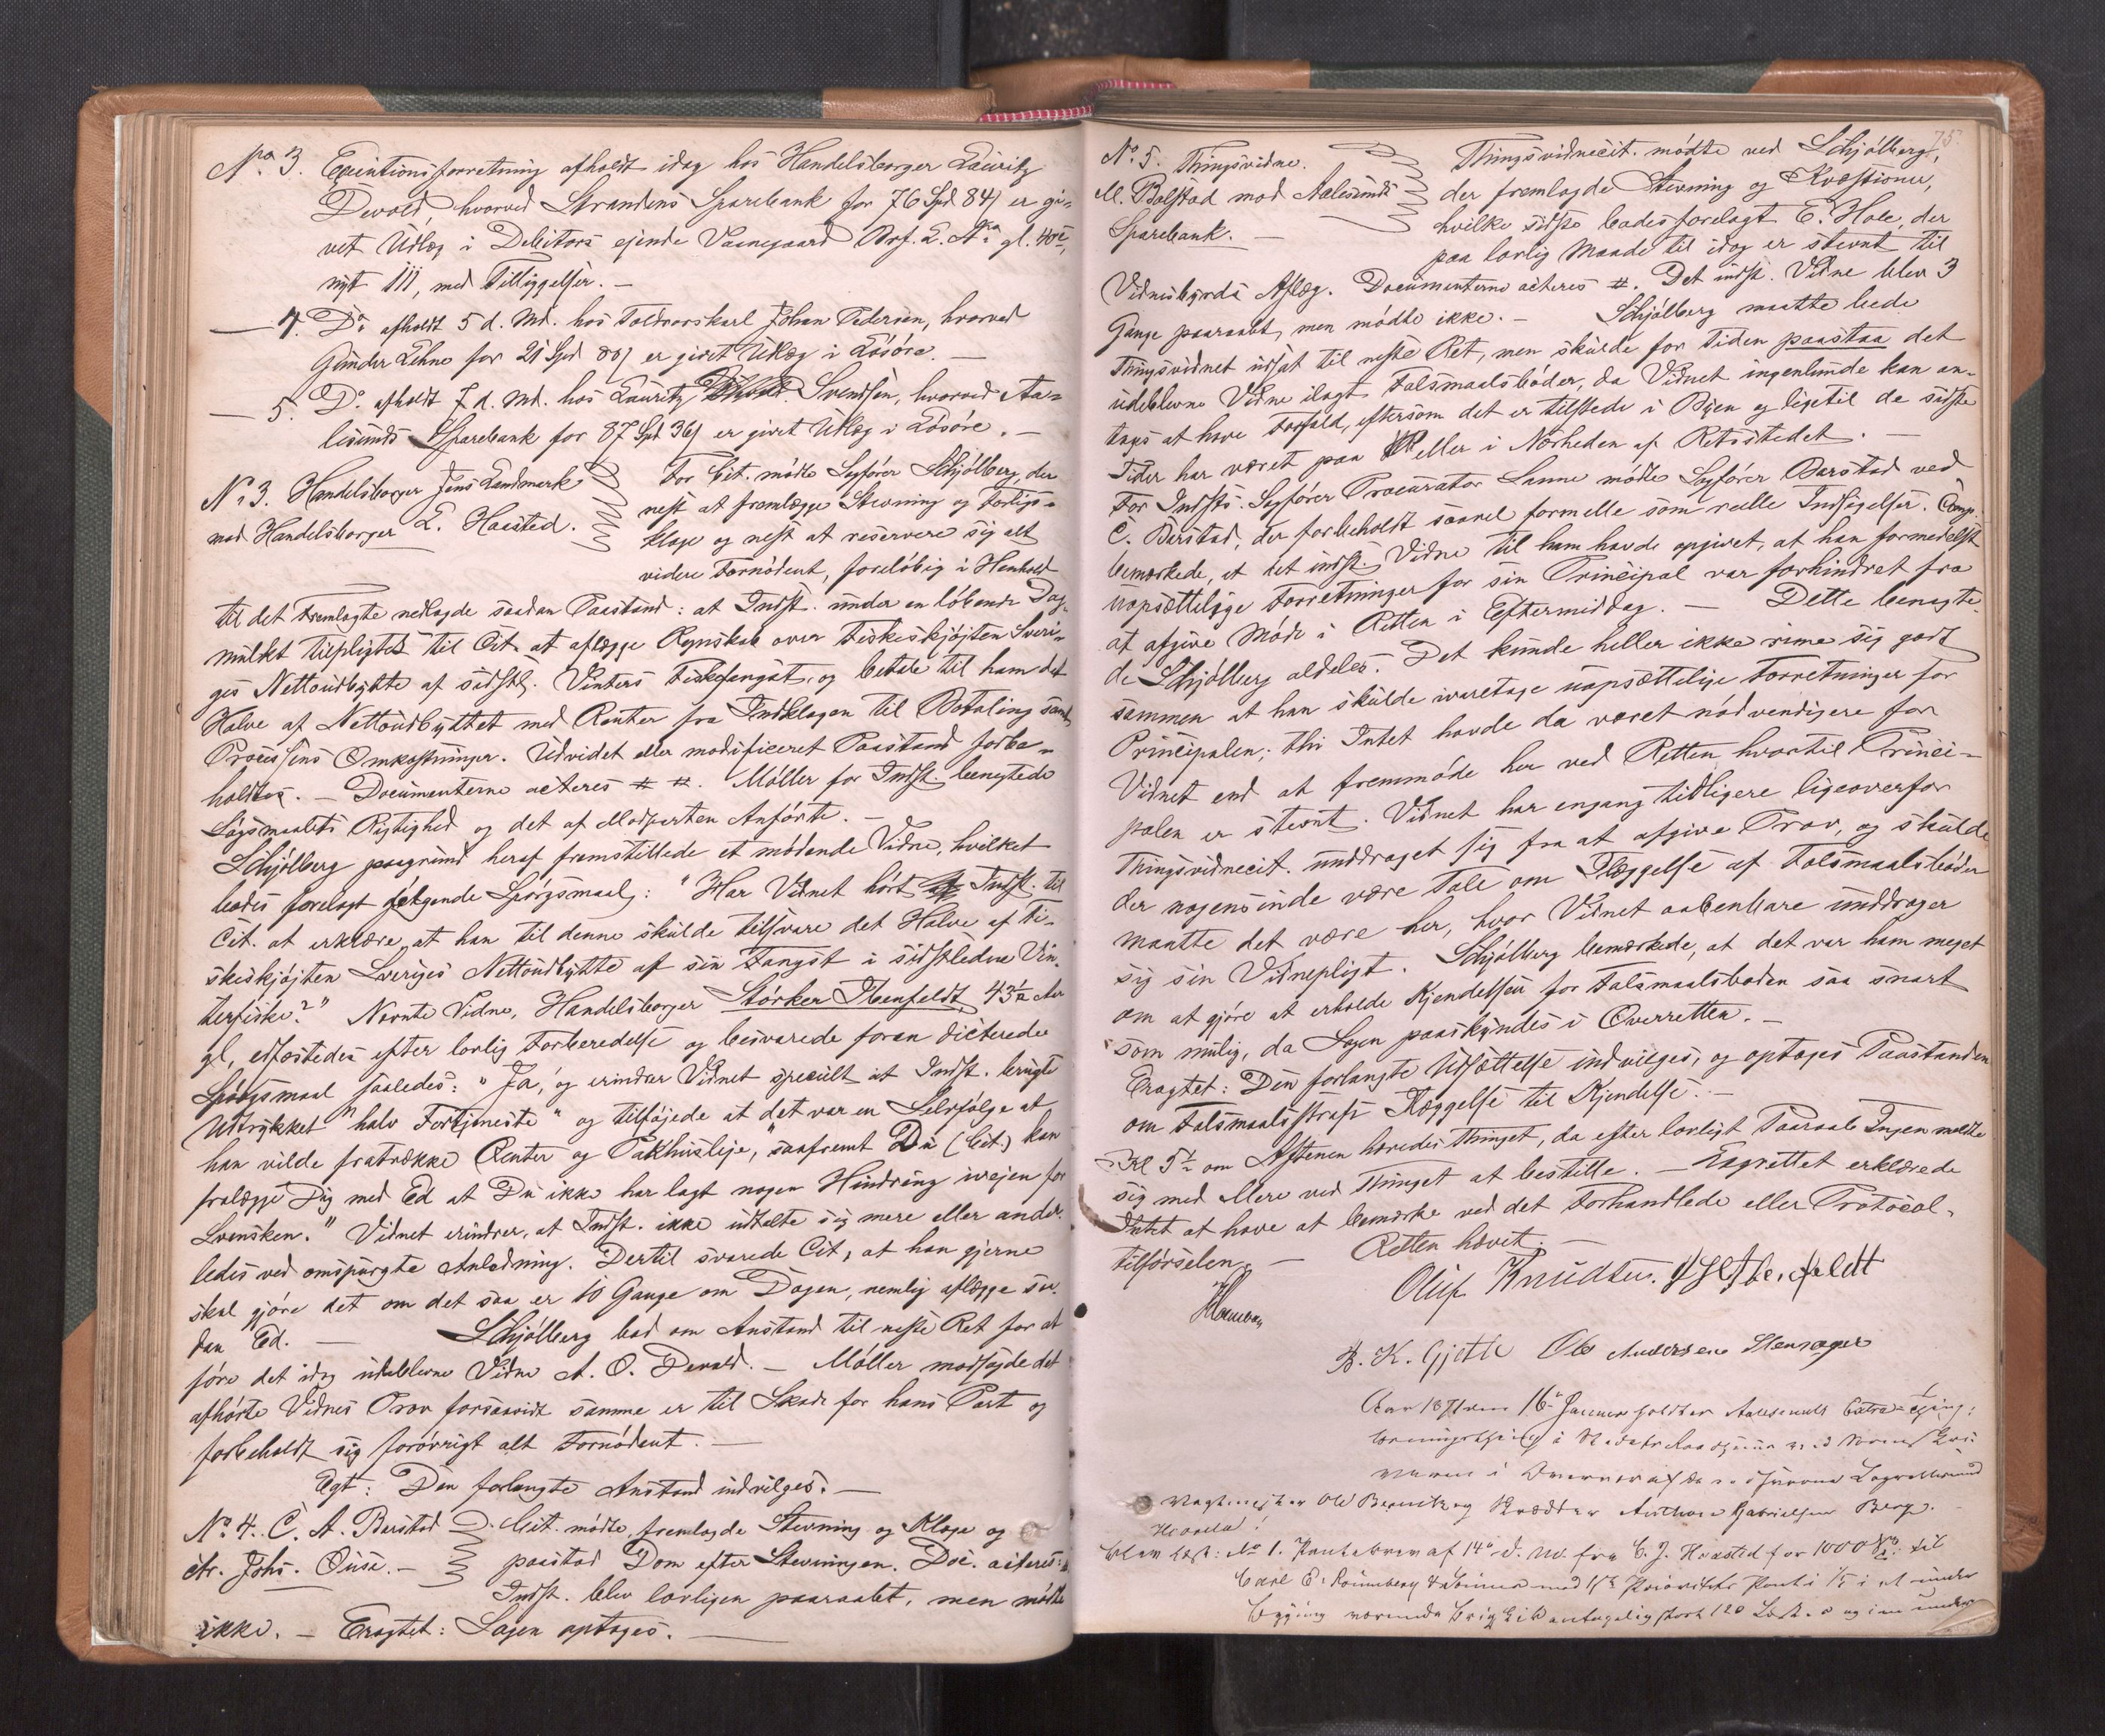 No. 3. Executionsforretning afholdt idag hos Handelsborger Lauritz
Devold, hvorved Strandens Sparebank for 76 Spd 84 s er gi-
vet Udlæg i Debitors ejende Vaaningsgaard Brf. L. No. gl. 40e,
nyt 111, med Tilliggelser. —
— 4. Do. afholdt 5 d. Md. hos Toldroerskarl Johan Pedersen, hvorved
Gunder Lehne for 21 Spd 80 s er givet Udlæg i Løsøre. —
— 5. Do. afholdt 7 d. Md. hos Lauritz Svendsen, hvorved Aa-
lesunds Sparebank for 87 Spd 36 s er givet Udlæg i Løsøre. —
No. 3. Handelsborger Jens Landmark
mod Handelsborger E. Haasted.
For Cit. mødte Sagfører Schjølberg, der
nest at fremlægge Stevning og Forligs-
klage og nest at reservere sig alt
videre Fornødent, foreløbig i Henhold
til det Fremlagte nedlagde saadan Paastand: at Indst. under en løbende Dag-
mulkt tilpligtes til Cit. at aflægge Regnskab over Fiskeskjøjten Sveri-
ges Nettoudbytte af sidstl. Vinters Fiskefangst, og betale til ham det
Halve af Nettoudbyttet med Renter fra Indklagen til Betaling samt
Processens Omkostninger. Udvidet eller modificeret Paastand forbe-
holdtes. — Documenterne acteres # #. Møller for Indst. benegtede
Søgsmaalets Rigtighed og det af Modparten Anførte. —
Schjølberg paagrund heraf fremstillede et mødende Vidne, hvilket
bades forelagt følgende Spørgsmaal: "Har Vidnet hørt Indst. til
Cit. at erklære, at han til denne skulde tilsvare det Halve af Fi-
skeskjøjten Sveriges Nettoudbytte af sin Fangst i sidstledne Vin-
terfiske?" Nævnte Vidne, Handelsborger Størker Ibenfeldt, 43½ Aar
gl, edfæstedes efter lovlig Forberedelse og besvarede foran dicterede
Spørgsmaal saaledes: "Ja, og erindrer Vidnet specielt at Indst. brugte
Udtrykket "halv Fortjeneste" og tilføjede at det var en Selvfølge at
han vilde fratrække Renter og Pakhusleje, "saafremt Du (Cit.) kan
fralægge Dig med Ed at Du ikke har lagt nogen Hindring ivejen for
Svensken." Vidnet erindrer, at Indst. ikke udtalte sig mere eller ander-
ledes ved omspurgte Anledning. Dertil svarede Cit., at han gjerne
skal gjøre det om det saa er 10 Gange om Dagen, nemlig aflægge saa-
dan Ed. — Schjølberg bad om Anstand til neste Ret for at
føre det idag udeblevne Vidne A. O. Devold. — Møller modsagde det
afhørte Vidnes Prov forsaavidt samme er til Skade for hans Part og
forbeholdt sig forøvrigt alt Fornødent. —
Egt: Den forlangte Anstand indvilges. —
No. 4. C. A. Barstad
ctr. Johs. Ouse. —
Cit. mødte, fremlagde Stevning og Klage og
paastod Dom efter Stevningen. Doc. acteres: #
Indst. blev lovligen paaraabt, men mødte
ikke. — Eragtet: Sagen optages. —
75
No. 5. Thingsvidne.
M. Bolstad mod Aalesunds
Sparebank. —
Thingsvidnecit. mødte ved Schjølberg,
der fremlagde Stevning og Kvæstioner,
hvilke sidste bades forelagt E. Hole, der
paa lovlig Maade til idag er stevnt til
Vidnesbyrds Aflæg. Documenterne acteres #. Det indst. Vidne blev 3
Gange paaraabt, men mødte ikke. — Schjølberg maatte bede
Thingsvidnet udsat til neste Ret, men skulde for Tiden paastaa det
udeblevne Vidne ilagt Falsmaalsbøder, da Vidnet ingenlunde kan an-
tages at have Forfald, eftersom det er tilstede i Byen og ligetil de sidste
Tider har været paa eller i Nærheden af Retsstedet. —
For Indsts. Sagfører Procurator Lanne mødte Sagfører Barstad ved
C. Barstad, der forbeholdt saavel formelle som reelle Indsigelser. Comp.
bemærkede, at det indst. Vidne til ham havde opgivet, at han formedelst
uopsættelige Forretninger for sin Principal var forhindret fra
at afgive Møde i Retten i Eftermiddag. — Dette benegte-
de Schjølberg aldeles. Det kunde heller ikke rime sig godt
sammen at han skulde ivaretage uopsættelige Forretninger for
Principalen; thi Intet havde da været nødvendigere for
Vidnet end at fremmøde her ved Retten, hvortil Princi-
palen er stevnt. Vidnet har engang tidligere ligeoverfor
Thingsvidnecit. unddraget sig fra at afgive Prov, og skulde
der nogensinde være Tale om Ilæggelse af Falsmaalsbøder
maatte det være her, hvor Vidnet aabenbare unddrager
sig sin Vidnepligt. Schjølberg bemærkede, at det var ham meget
om at gjøre at erholde Kjendelsen for Falsmaalsbøden saa snart
som mulig, da Sagen paaskyndes i Overretten. —
Eragtet: Den forlangte Udsættelse indvilges, og optages Paastanden
om Falsmaalsstrafs Ilæggelse til Kjendelse. —
Kl 5½ om Aftenen hævedes Thinget, da efter lovligt Paaraab Ingen meldte
sig med Mere ved Thinget at bestille. — Lagrettet erklærede
Intet at have at bemærke ved det Forhandlede eller Protocol-
tilførselen. — Retten hævet. —
Oluf Knudsen. Ibenfeldt
B. K. Gjethe Ole Andersen Stensager
Aar 1871 den 16de Januar holdtes Aalesunds Extra
i
i
Ole Berentzen og Gabrielsen Berg.
No. 1. Pantebrev af 14de d. Md. fra C. J. Haasted for 1000 Spd. til
Carl E. Rønneberg &amp; Sønner med 1ste Prioritets Pant i ½ i et under
Bygning værende antagelig stort 120 og i en under